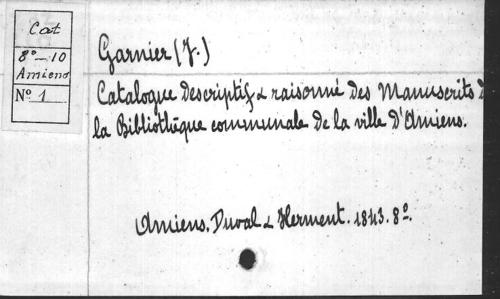 Cat
8º — 10
Amiens
Nº 1
Garnier (J.)
Catalogue Descriptif & raisonné des Manuscrits d
la Bibliothèque communale de la ville d'Amiens.
Amiens. Duval & Herment. 1843. 8º.